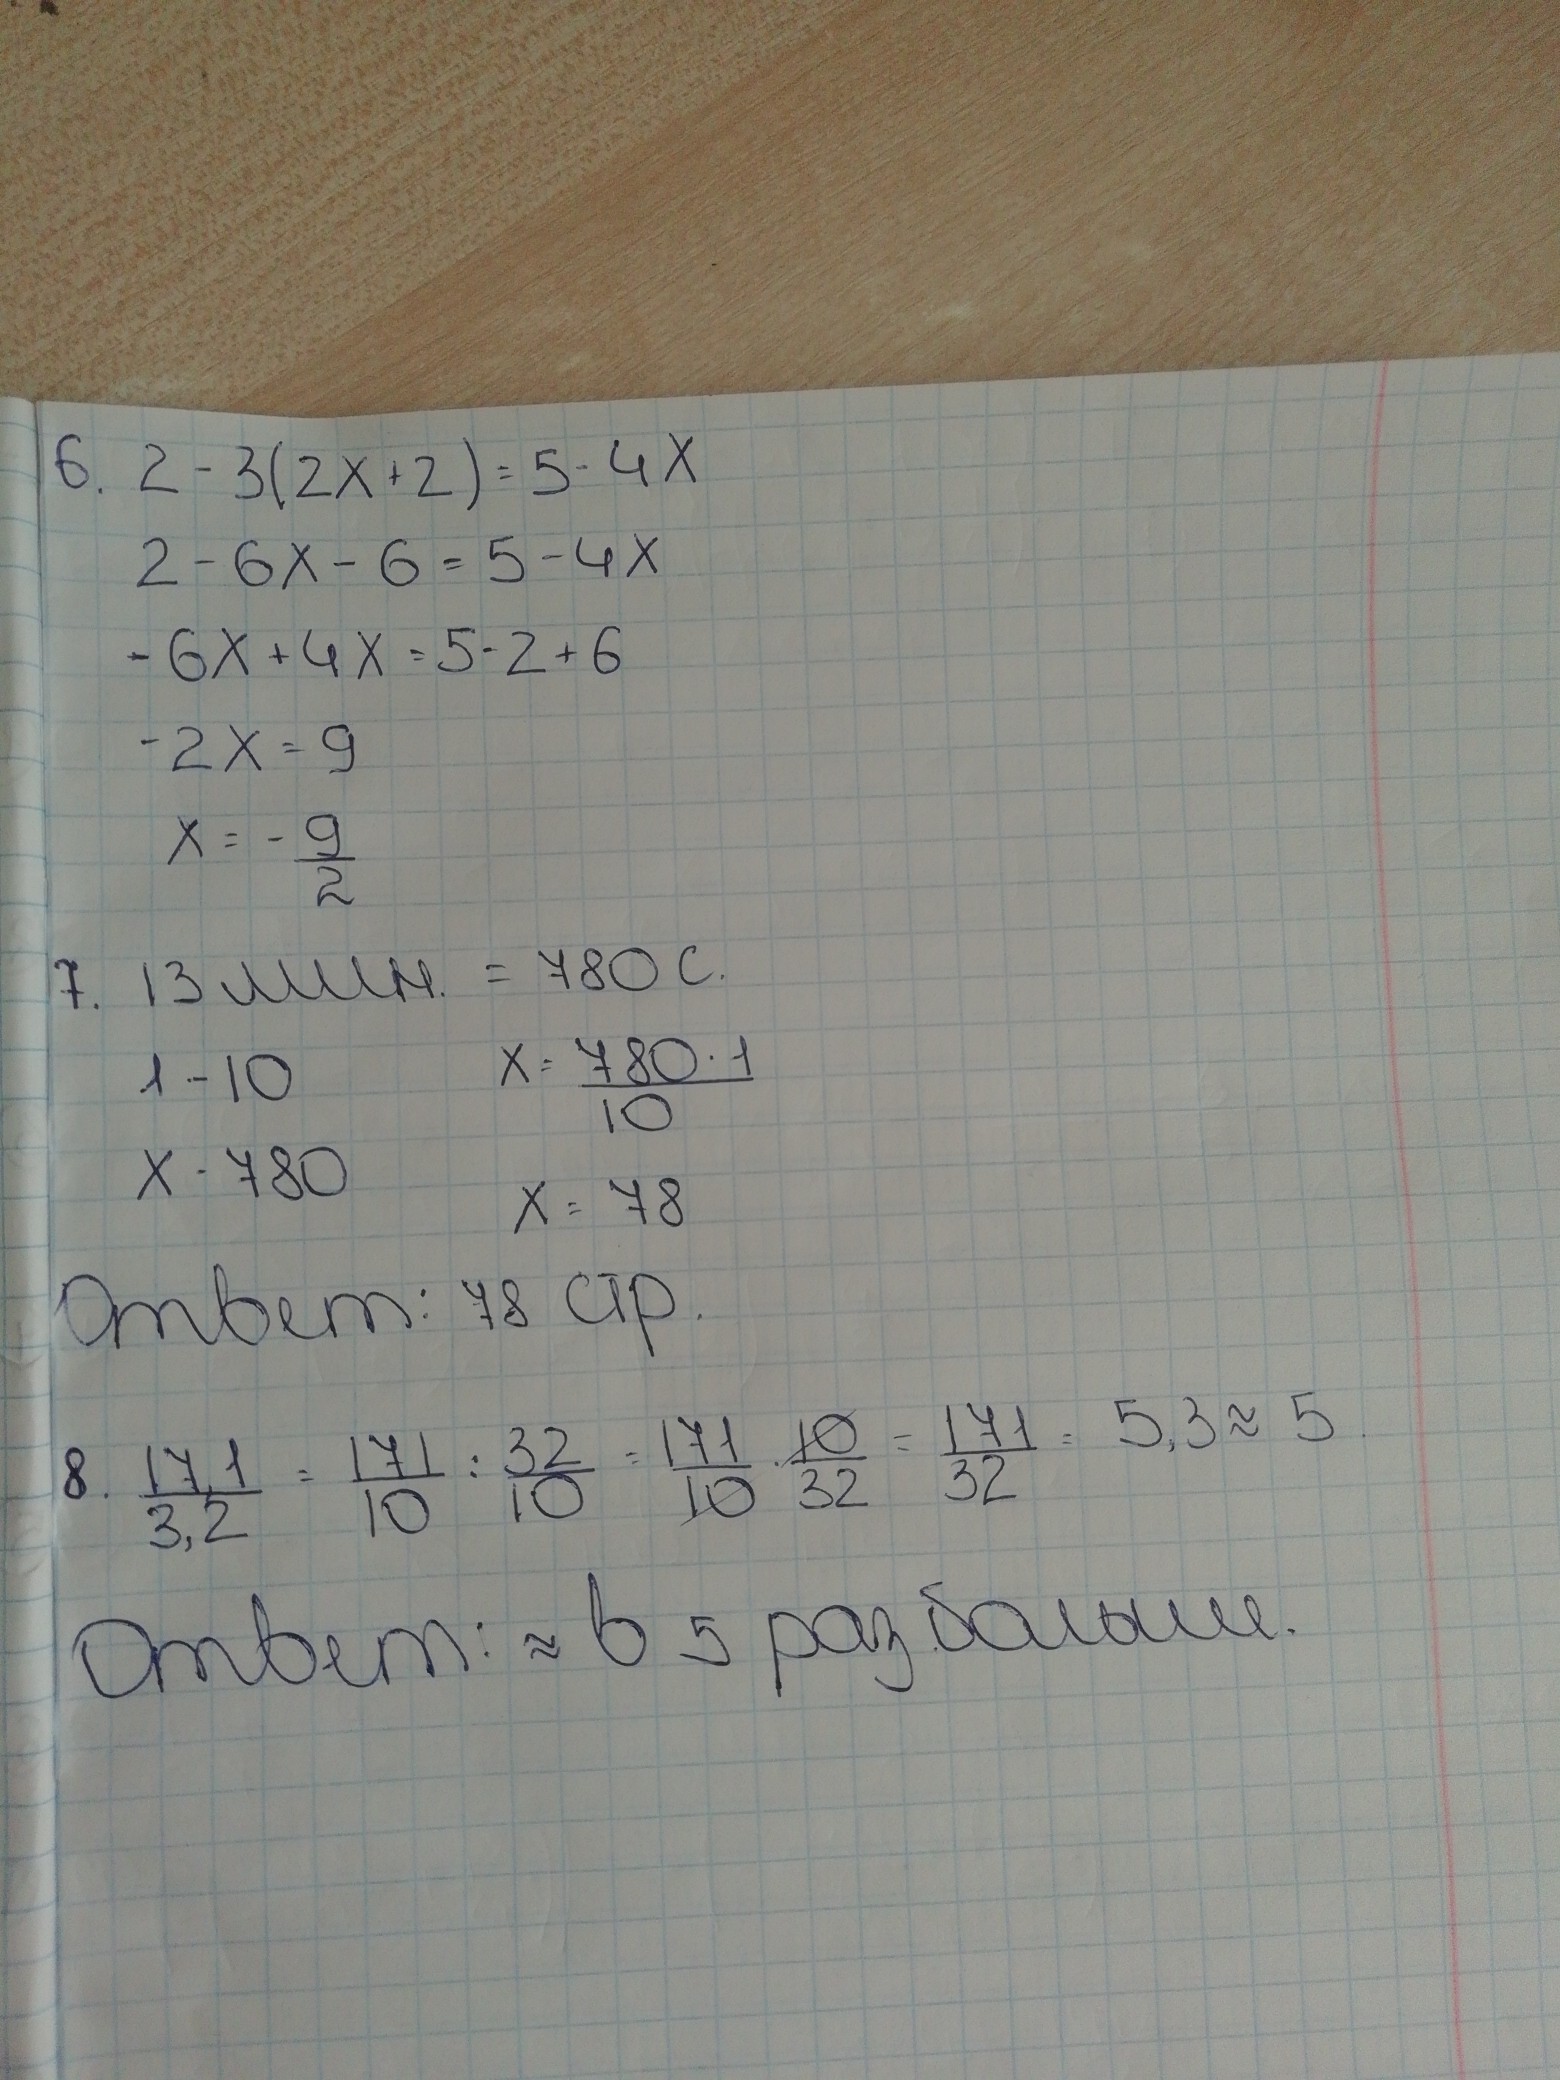 6. 2 - 3(2x+2) = 5 - 4x
2 - 6x - 6 = 5 - 4x
-6x + 4x = 5 - 2 + 6
-2x = 9
x = -9/2
7. 13 мин. = 780 с.
1 - 10 x = 780·1/10
x - 780 x = 78
Ответ: 78 стр.
8. 17,1/3,2 = 171/10 : 32/10 = 171/10 · 10/32 = 171/32 = 5,3 ≈ 5.
Ответ: ≈ в 5 раз больше.